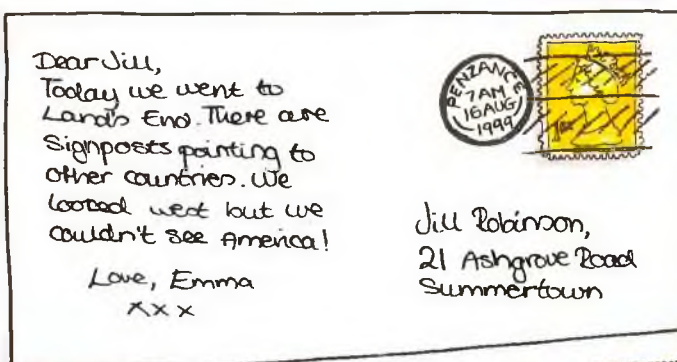 Dear Jill,
Today we went to
Land's End. There are
Signposts pointing to
other countries. We
looked west but we
couldn't see America!
Love, Emma
xxx
PENZANCE
7AM
16 AUG
1999
Jill Robinson,
21 Ashgrove Road
Summertown